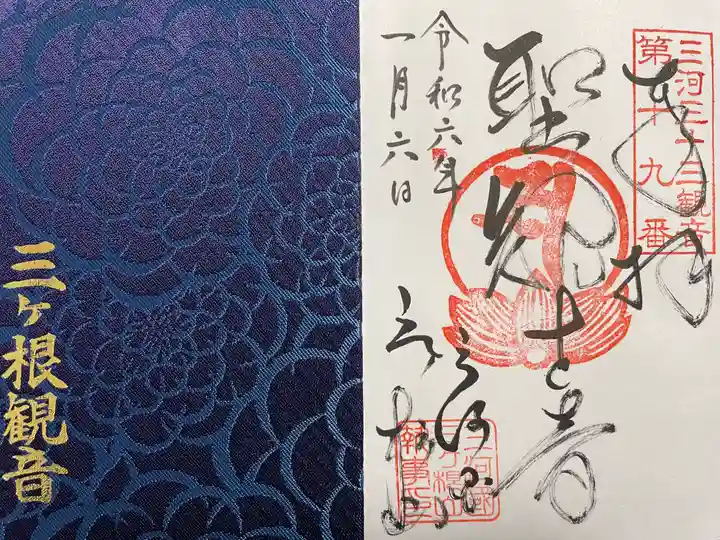 三ヶ根観音
三河三十三観音
第十九番
奉拝
聖観世音
三河国
三ヶ根山
令和六年
一月六日